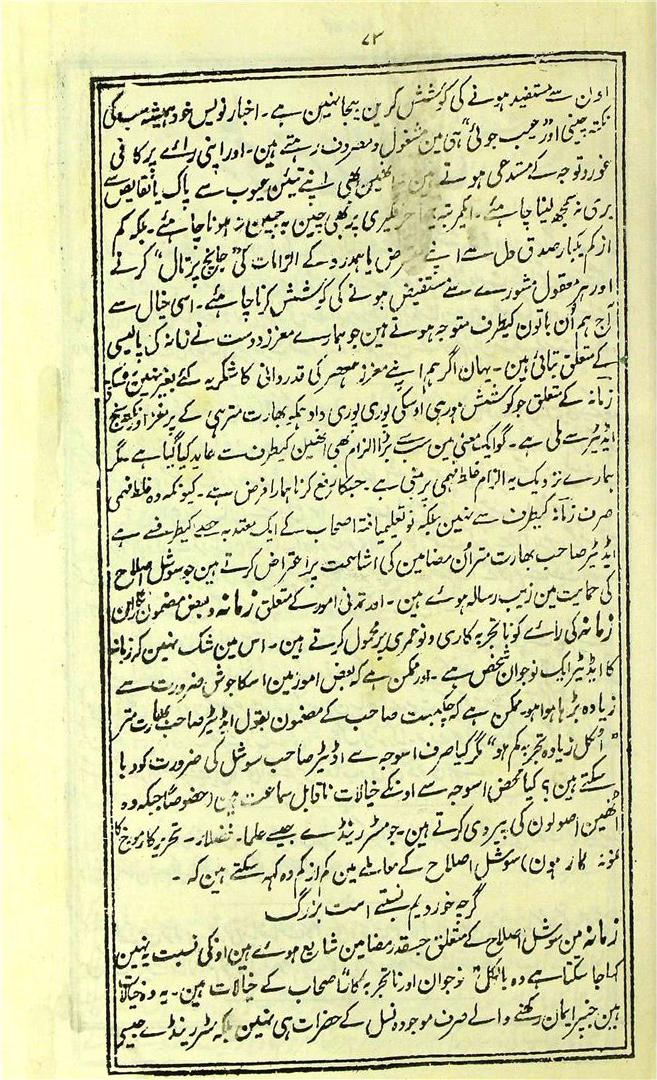 ۷۳
اون سے مستفید ہونے کی کوشش کرین بیجا نہین ہے۔ اخبار نویس خود ہمیشہ سب کی
نکتہ چینی اور "عیب جوئی" ہی مین مشغول و مصروف رہتے ہین۔ اور اپنی رائے پر کافی
غور و توجہ کے مستدعی ہوتے ہین انھین بھی اپنے تئین عیوب سے پاک یا نقایص سے
بری نہ سمجھ لینا چاہئے۔ پر بھی چین بہ جبین نہ ہونا چاہئے۔ بلکہ کم
از کم یکبار صدق دل سے اپنے معترض یا ہمدرد کے الزامات کی "جانچ پرتال" کرنے
اور ہر معقول مشورے سے مستفیض ہونے کی کوشش کرنا چاہئے۔ اسی خیال سے
آج ہم اُن باتون کیطرف متوجہ ہوتے ہین جو ہمارے معزز دوست نے زمانہ کی پالیسی
کے متعلق بتائی ہین۔ یہان اگر ہم اپنے معزز ہمعصر کی قدردانی کا شکریہ کئے بغیر نہین رہ سکتے
زمانہ کے متعلق جو کوشش ہو رہی اوسکی پوری پوری داد ہمکو بھارت متر ہی کے پر مغز اور نکتہ سنج
ایڈیٹر سے ملی ہے۔ گو ایک معنی مین سب سے بڑا الزام بھی انھین کیطرف سے عاید کیا گیا ہے۔ مگر
ہمارے نزدیک یہ الزام غلط فہمی پر مبنی ہے جسکا رفع کرنا ہمارا فرض ہے۔ کیونکہ وہ غلط فہمی
صرف زمانہ کیطرف سے نہین بلکہ نو تعلیمیافتہ اصحاب کے ایک معتد بہ حصے کیطرف سے ہے
ایڈیٹر صاحب بھارت متر اُن مضامین کی اشاعت پر اعتراض کرتے ہین جو سوشل اصلاح
کی حمایت مین زیب رسالہ ہوئے ہین۔ اور تمدنی امور کے متعلق زمانہ و بعض مضمون نگاران
زمانہ کی رائے کو ناتجربہ کاری و نوعمری پر محمول کرتے ہین۔ اس مین شک نہین کہ زمانہ
کا ایڈیٹر ایک نوجوان شخص ہے۔ اور ممکن ہے کہ بعض امور مین اسکا جوش ضرورت سے
زیادہ بڑہا ہوا ہو۔ ممکن ہے کہ چکبست صاحب کے مضمون بقول ایڈیٹر صاحب بھارت متر
"اٹکل زیادہ تجربہ کم ہو" مگر کیا صرف اسوجہ سے اڈیٹر صاحب سوشل کی ضرورت کو دبا
سکتے ہین؟ کیا محض اسوجہ سے اونکے خیالات ناقابل سماعت ہین (خصوصاً جبکہ وہ
اُنھین اصولون کی پیروی کرتے ہین۔ جو مسٹر رینڈے جیسے علما۔ فضلا۔ تجربہ کار مورخ کا
نمونہ کار ہون) سوشل اصلاح کے معاملے مین کم از کم وہ کہہ سکتے ہین کہ۔
گرچہ خوردیم نسبتے است بزرگ
زمانہ من سوشل اصلاح کے متعلق جسقدر مضامین شایع ہوئے ہین اونکی نسبت یہ نہین
کہا جا سکتا ہے وہ بالکل "نوجوان اور ناتجربہ کار" اصحاب کے خیالات ہین۔ یہ وہ خیالات
ہین جنپر ایمان رکھنے والے صرف موجودہ نسل کے حضرات ہی نہین بلکہ مسٹر رینڈے جیسے